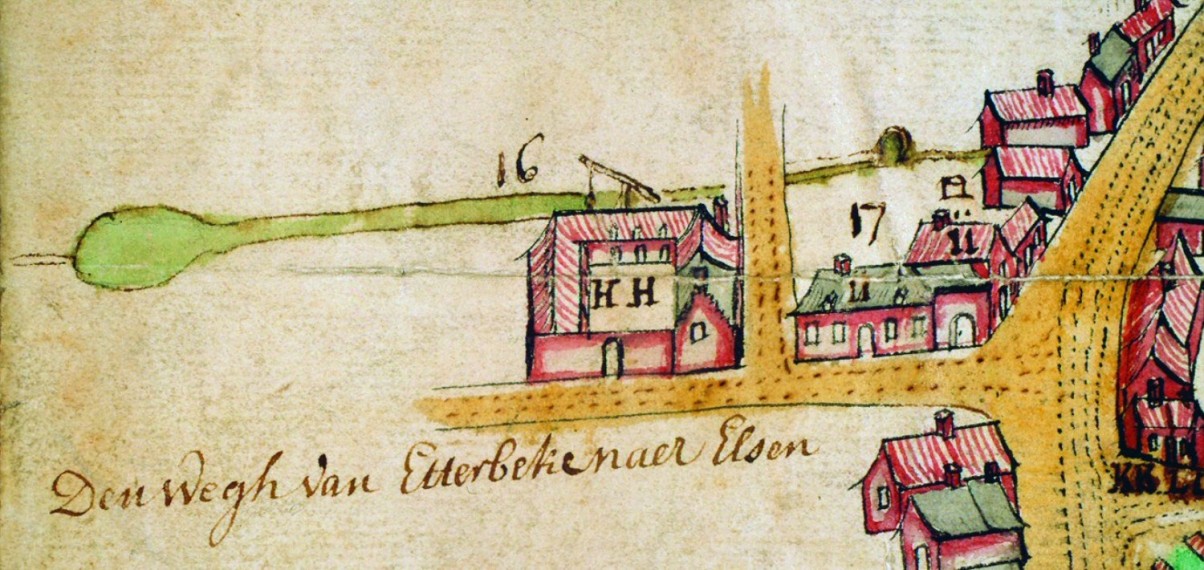 16
17
H H
II
II
Den Wegh van Etterbeke naer Elsen
KK